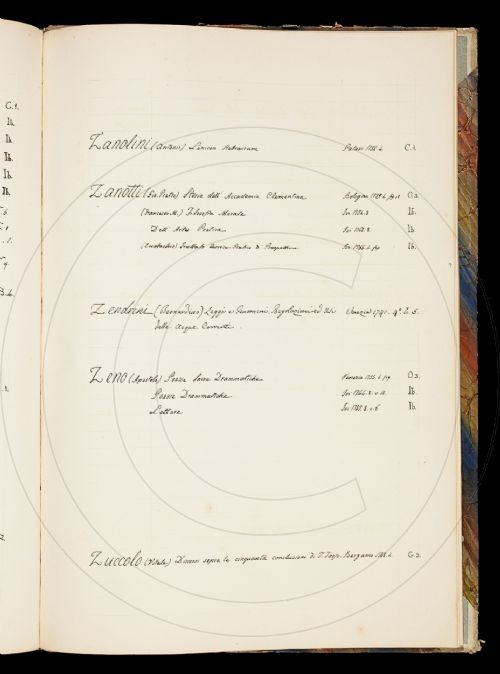 C.1.
Ib.
Ib.
Ib.
Ib.
Zanolini (Antonio) Lexicon Hebraicum Patavi 4. C.1.
Zanotti (Gio. Pietro) Storia dell' Accademia Clementina Bologna 1739. 4. fig. C.2.
(Francesco M.) Filosofia Morale Ivi 8 Ib.
Dell' Arte Poetica Ivi 8. Ib.
(Eustachio) Trattato Teorico-Pratico di Prospettiva Ivi 1766. 4. fig. Ib.
Zendrini (Bernardino) Leggi e Regolazioni ed Usi Venezia 1741. 4°. E. 5.
delle Acque Correnti.
Zeno (Apostolo) Poesie Sacre Drammatiche Venezia 1735. 4. fig. O.2.
Poesie Drammatiche Ivi 1744. 8. Ib.
Lettere Ivi 1785. 8. v. 6 Ib.
Zuccolo (Vitale) Discorsi sopra le cinquanta conclusioni di T. Tasso. Bergamo 4. G.2.